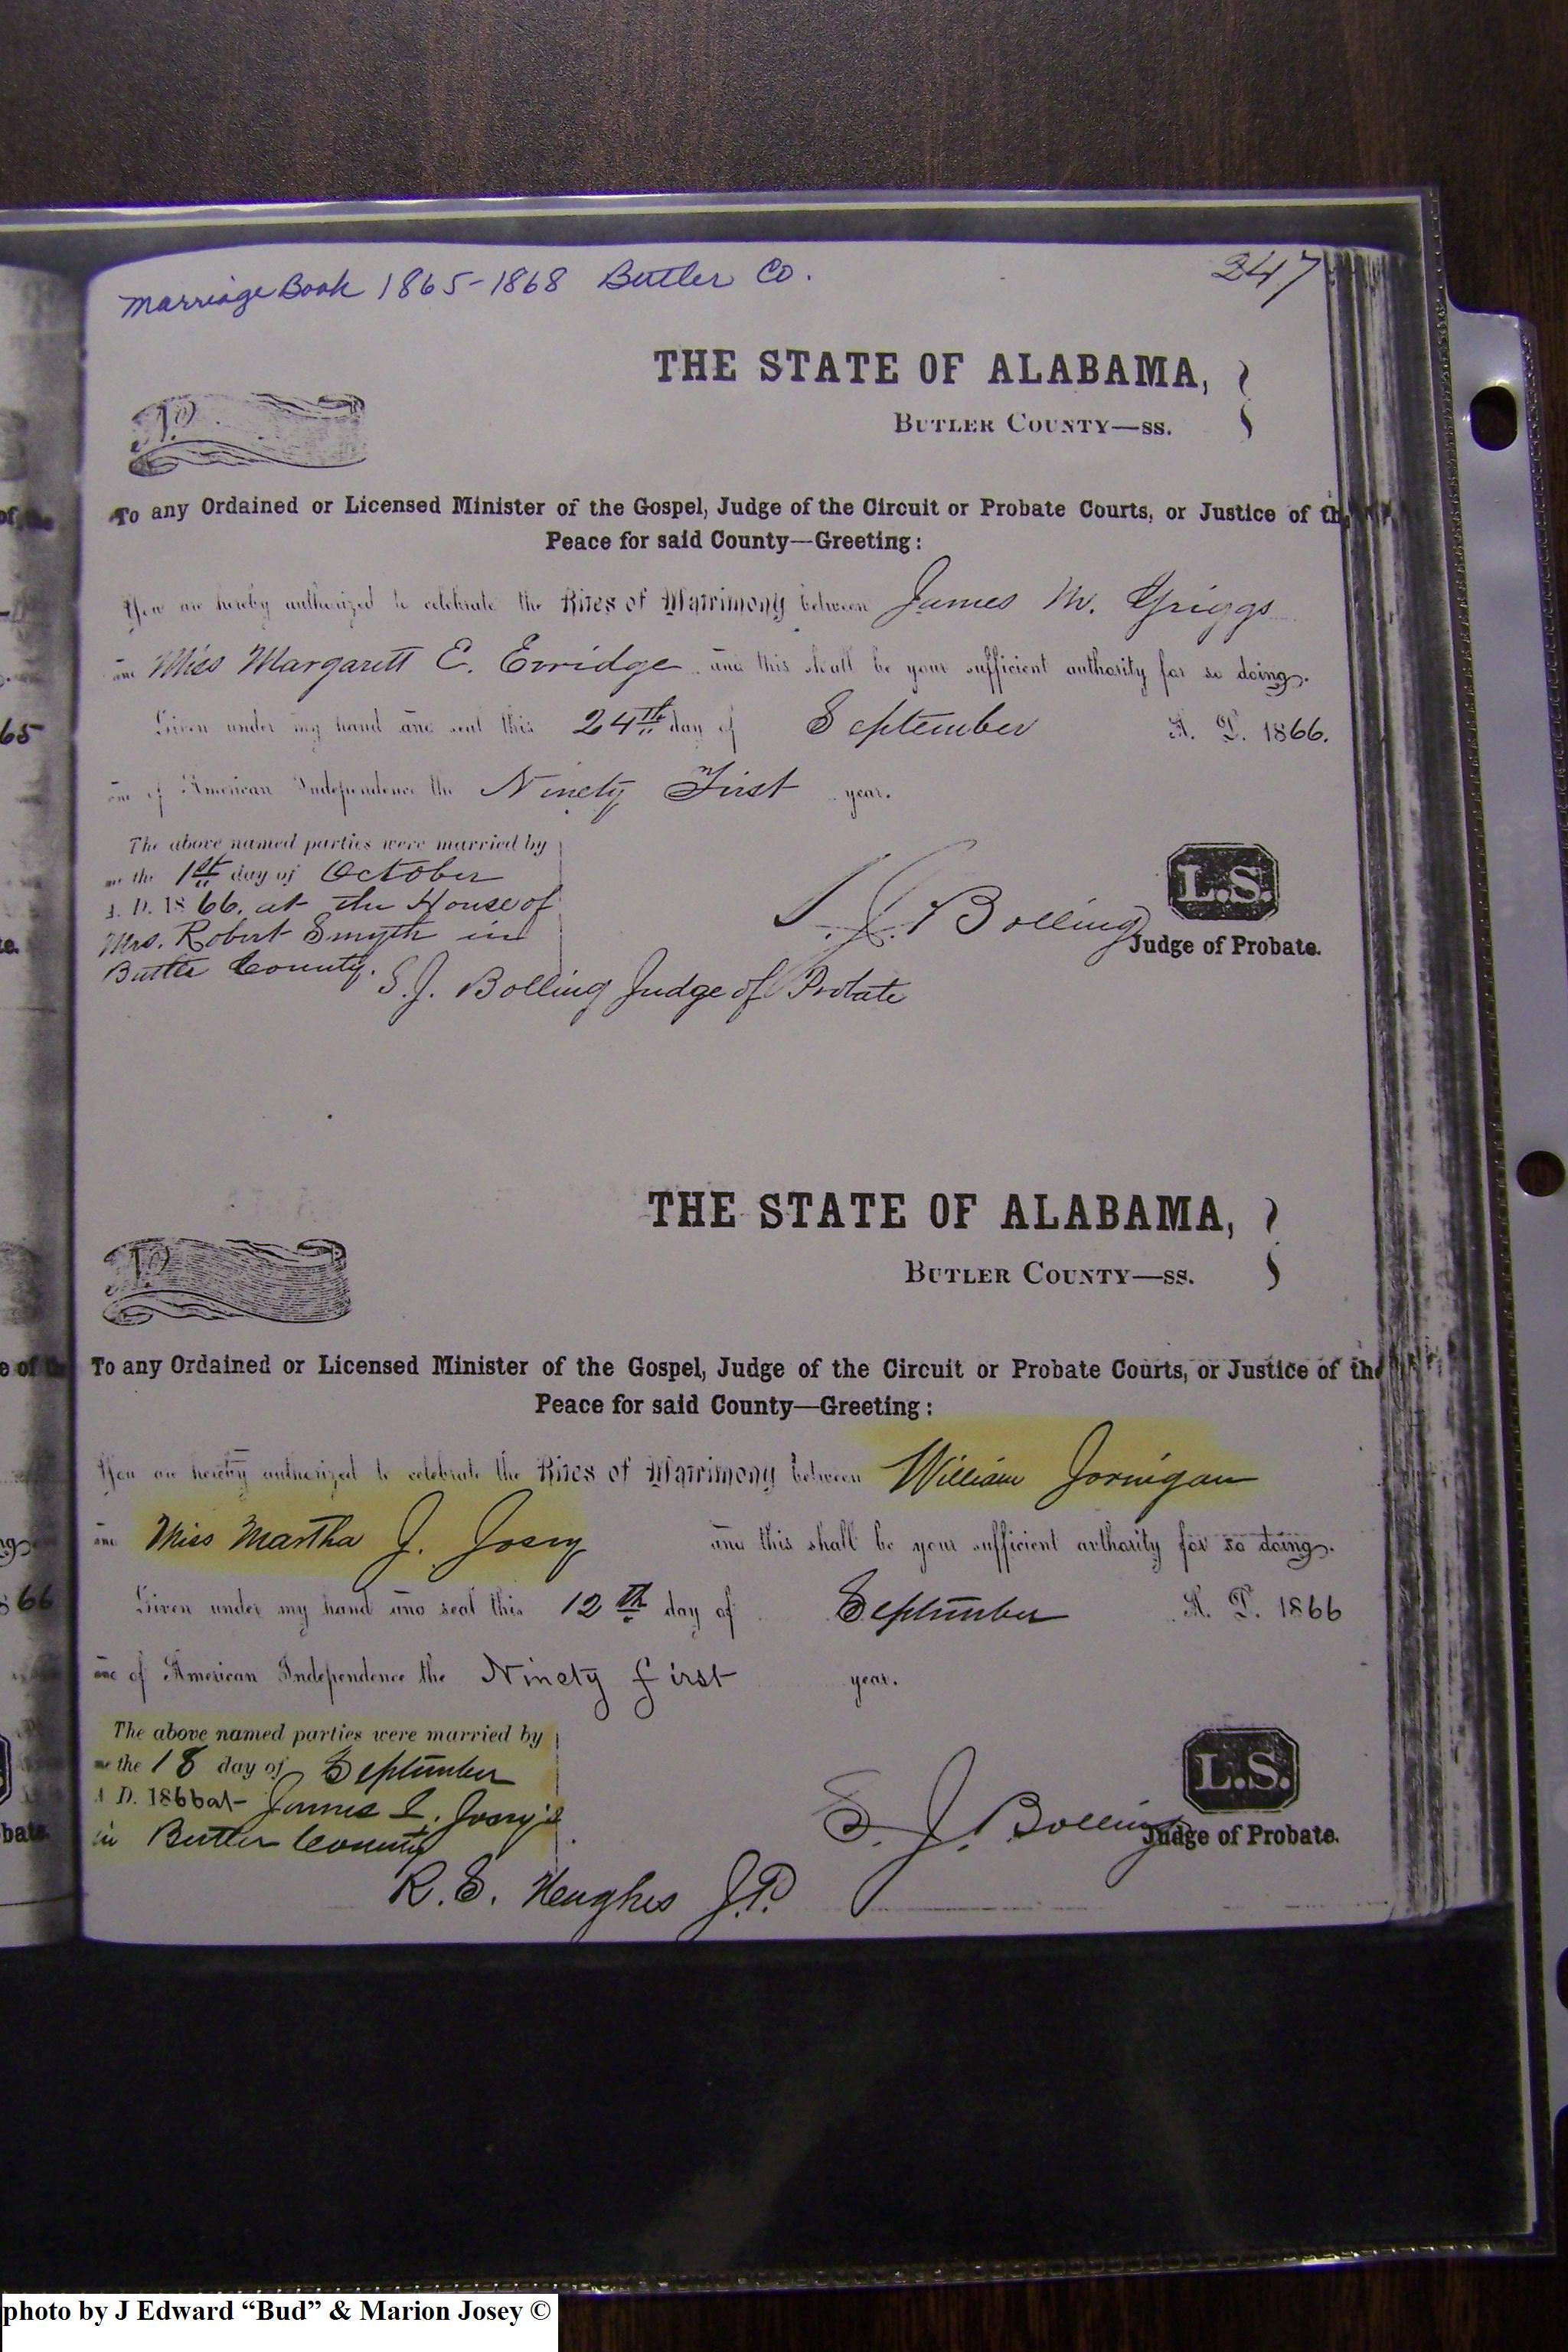 Marriage Book 1865-1868 Butler Co.
247
THE STATE OF ALABAMA,
BUTLER COUNTY—SS.
No
To any Ordained or Licensed Minister of the Gospel, Judge of the Circuit or Probate Courts, or Justice of the
Peace for said County—Greeting:
You are hereby authorized to celebrate the Rites of Matrimony between James M. Griggs
and Miss Margarett E. Erridge and this shall be your sufficient authority for so doing.
Given under my hand and seal this 24th day of September A. D. 1866.
and of American Independence the Ninety First year.
The above named parties were married by
me the 1st day of October
A. D. 1866. at the House of
Mrs. Robert Smyth in
Butler County.
S. J. Bolling L.S.
Judge of Probate.
S. J. Bolling Judge of Probate
THE STATE OF ALABAMA,
BUTLER COUNTY—SS.
No
To any Ordained or Licensed Minister of the Gospel, Judge of the Circuit or Probate Courts, or Justice of the
Peace for said County—Greeting:
You are hereby authorized to celebrate the Rites of Matrimony between William Jornigan
and Miss Martha J. Josey and this shall be your sufficient authority for so doing.
Given under my hand and seal this 12th day of September A. D. 1866
and of American Independence the Ninety first year.
The above named parties were married by
me the 18 day of September
A D. 1866 at James I. Josey's
in Butler County
S. J. Bolling L.S.
Judge of Probate.
R. S. Heughes J.P.
65
66
photo by J Edward “Bud” & Marion Josey ©